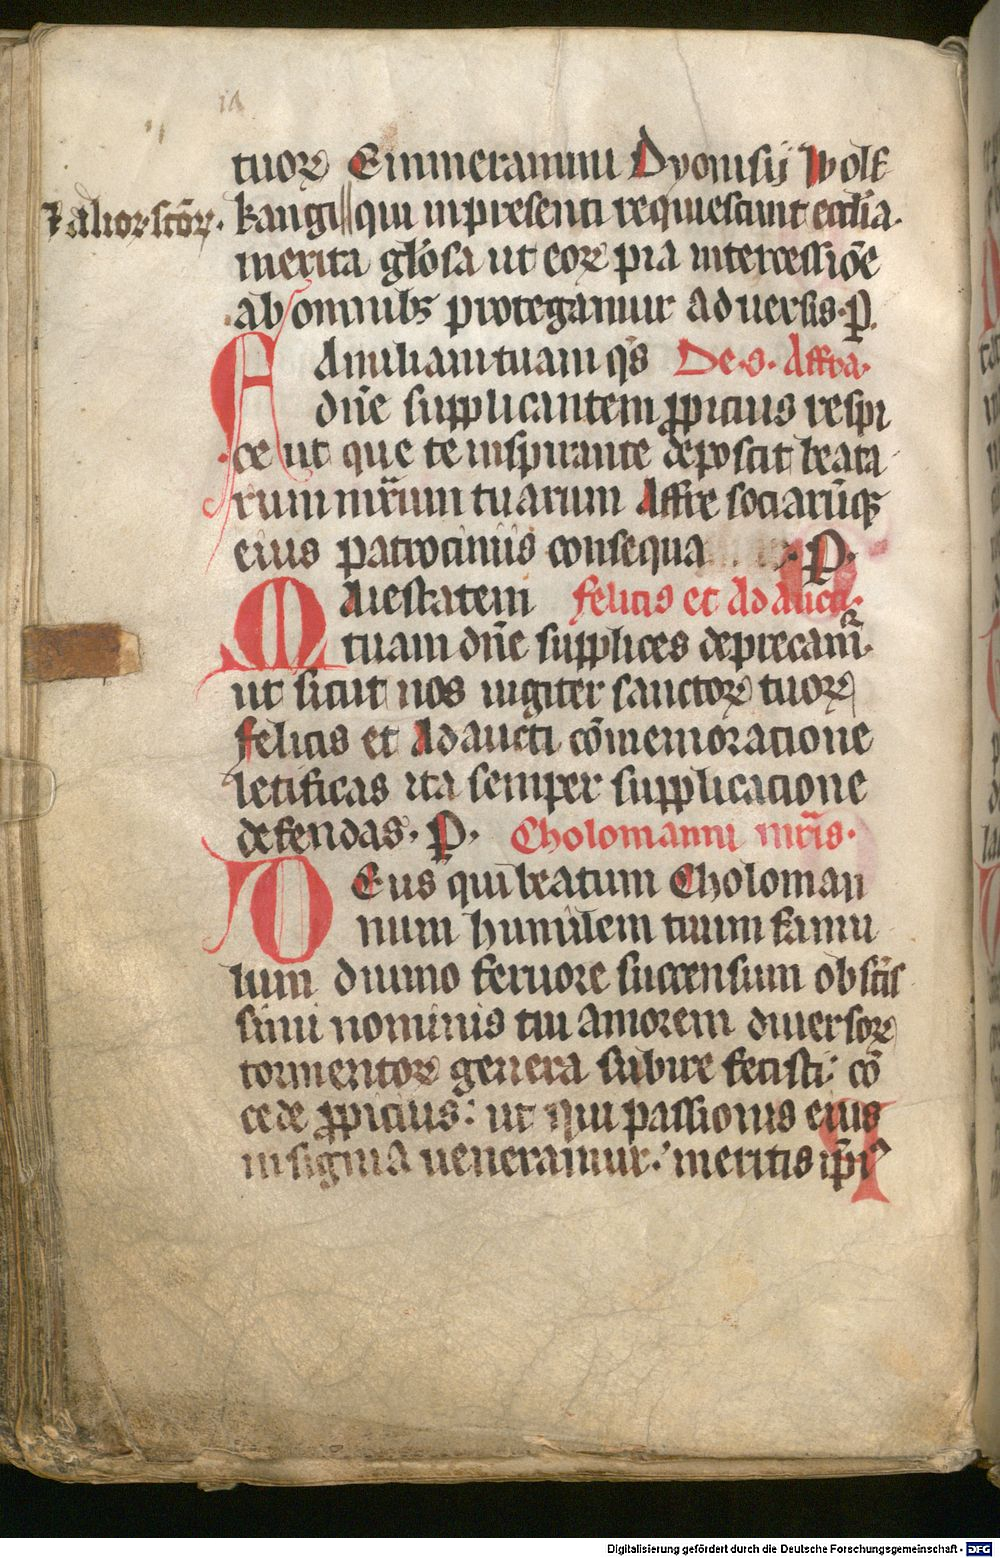 tuoꝝ Emmerammi Dyonisij Wolf
⁊ alioꝝ scōꝝ.
kangi || qui in presenti requiescunt eccłia.
merita głosa ut eoꝝ pia intercessiōe
ab omnibꝫ protegamur aduersis. P.
Amiliam tuam qs̄ De. s. Affra.
dn̄e supplicantem ꝓpicius respi
ce ut que te inspirante deposcit beata
rum mr̄ium tuarum Affre sociarūqꝫ
eius patrociniis consequa P.
Maiestatem felicis et Adaucti.
tuam dn̄e supplices deprecam᷑.
ut sicut nos iugiter sanctoꝝ tuoꝝ
felicis et Adaucti cōmemoracione
letificas ita semper supplicacione
defendas. P. Cholomanni mr̄is.
DEus qui beatum Choloman
num humilem tuum famu
lum diuino feruore succensum ob scīs
simi nominis tui amorem diuersoꝝ
tormentoꝝ genera subire fecisti: cō
cede ꝓpicius: ut qui passionis eius
insignia ueneramur: meritis ip̄iꝰ
Digitalisierung gefördert durch die Deutsche Forschungsgemeinschaft - DFG